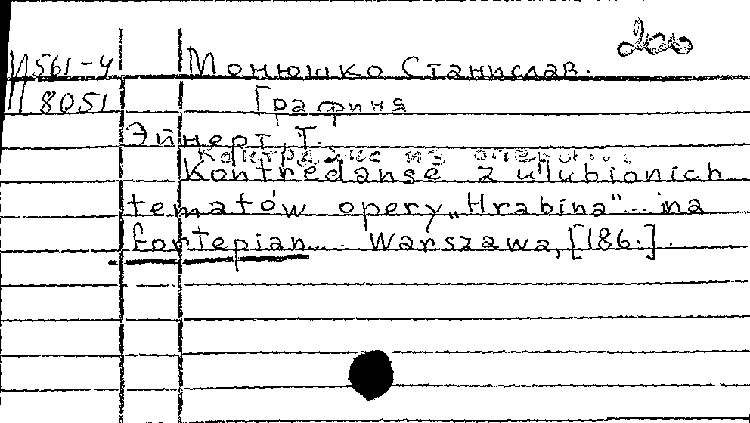 200
П561-4 Монюшко Станислав.
8051 Графиня
Эйнерт, Т.
Контраданс из оперы...
Kontredanse z ulubionich
tematów opery „Hrabina"... na
fortepian... Warszawa, [186.].